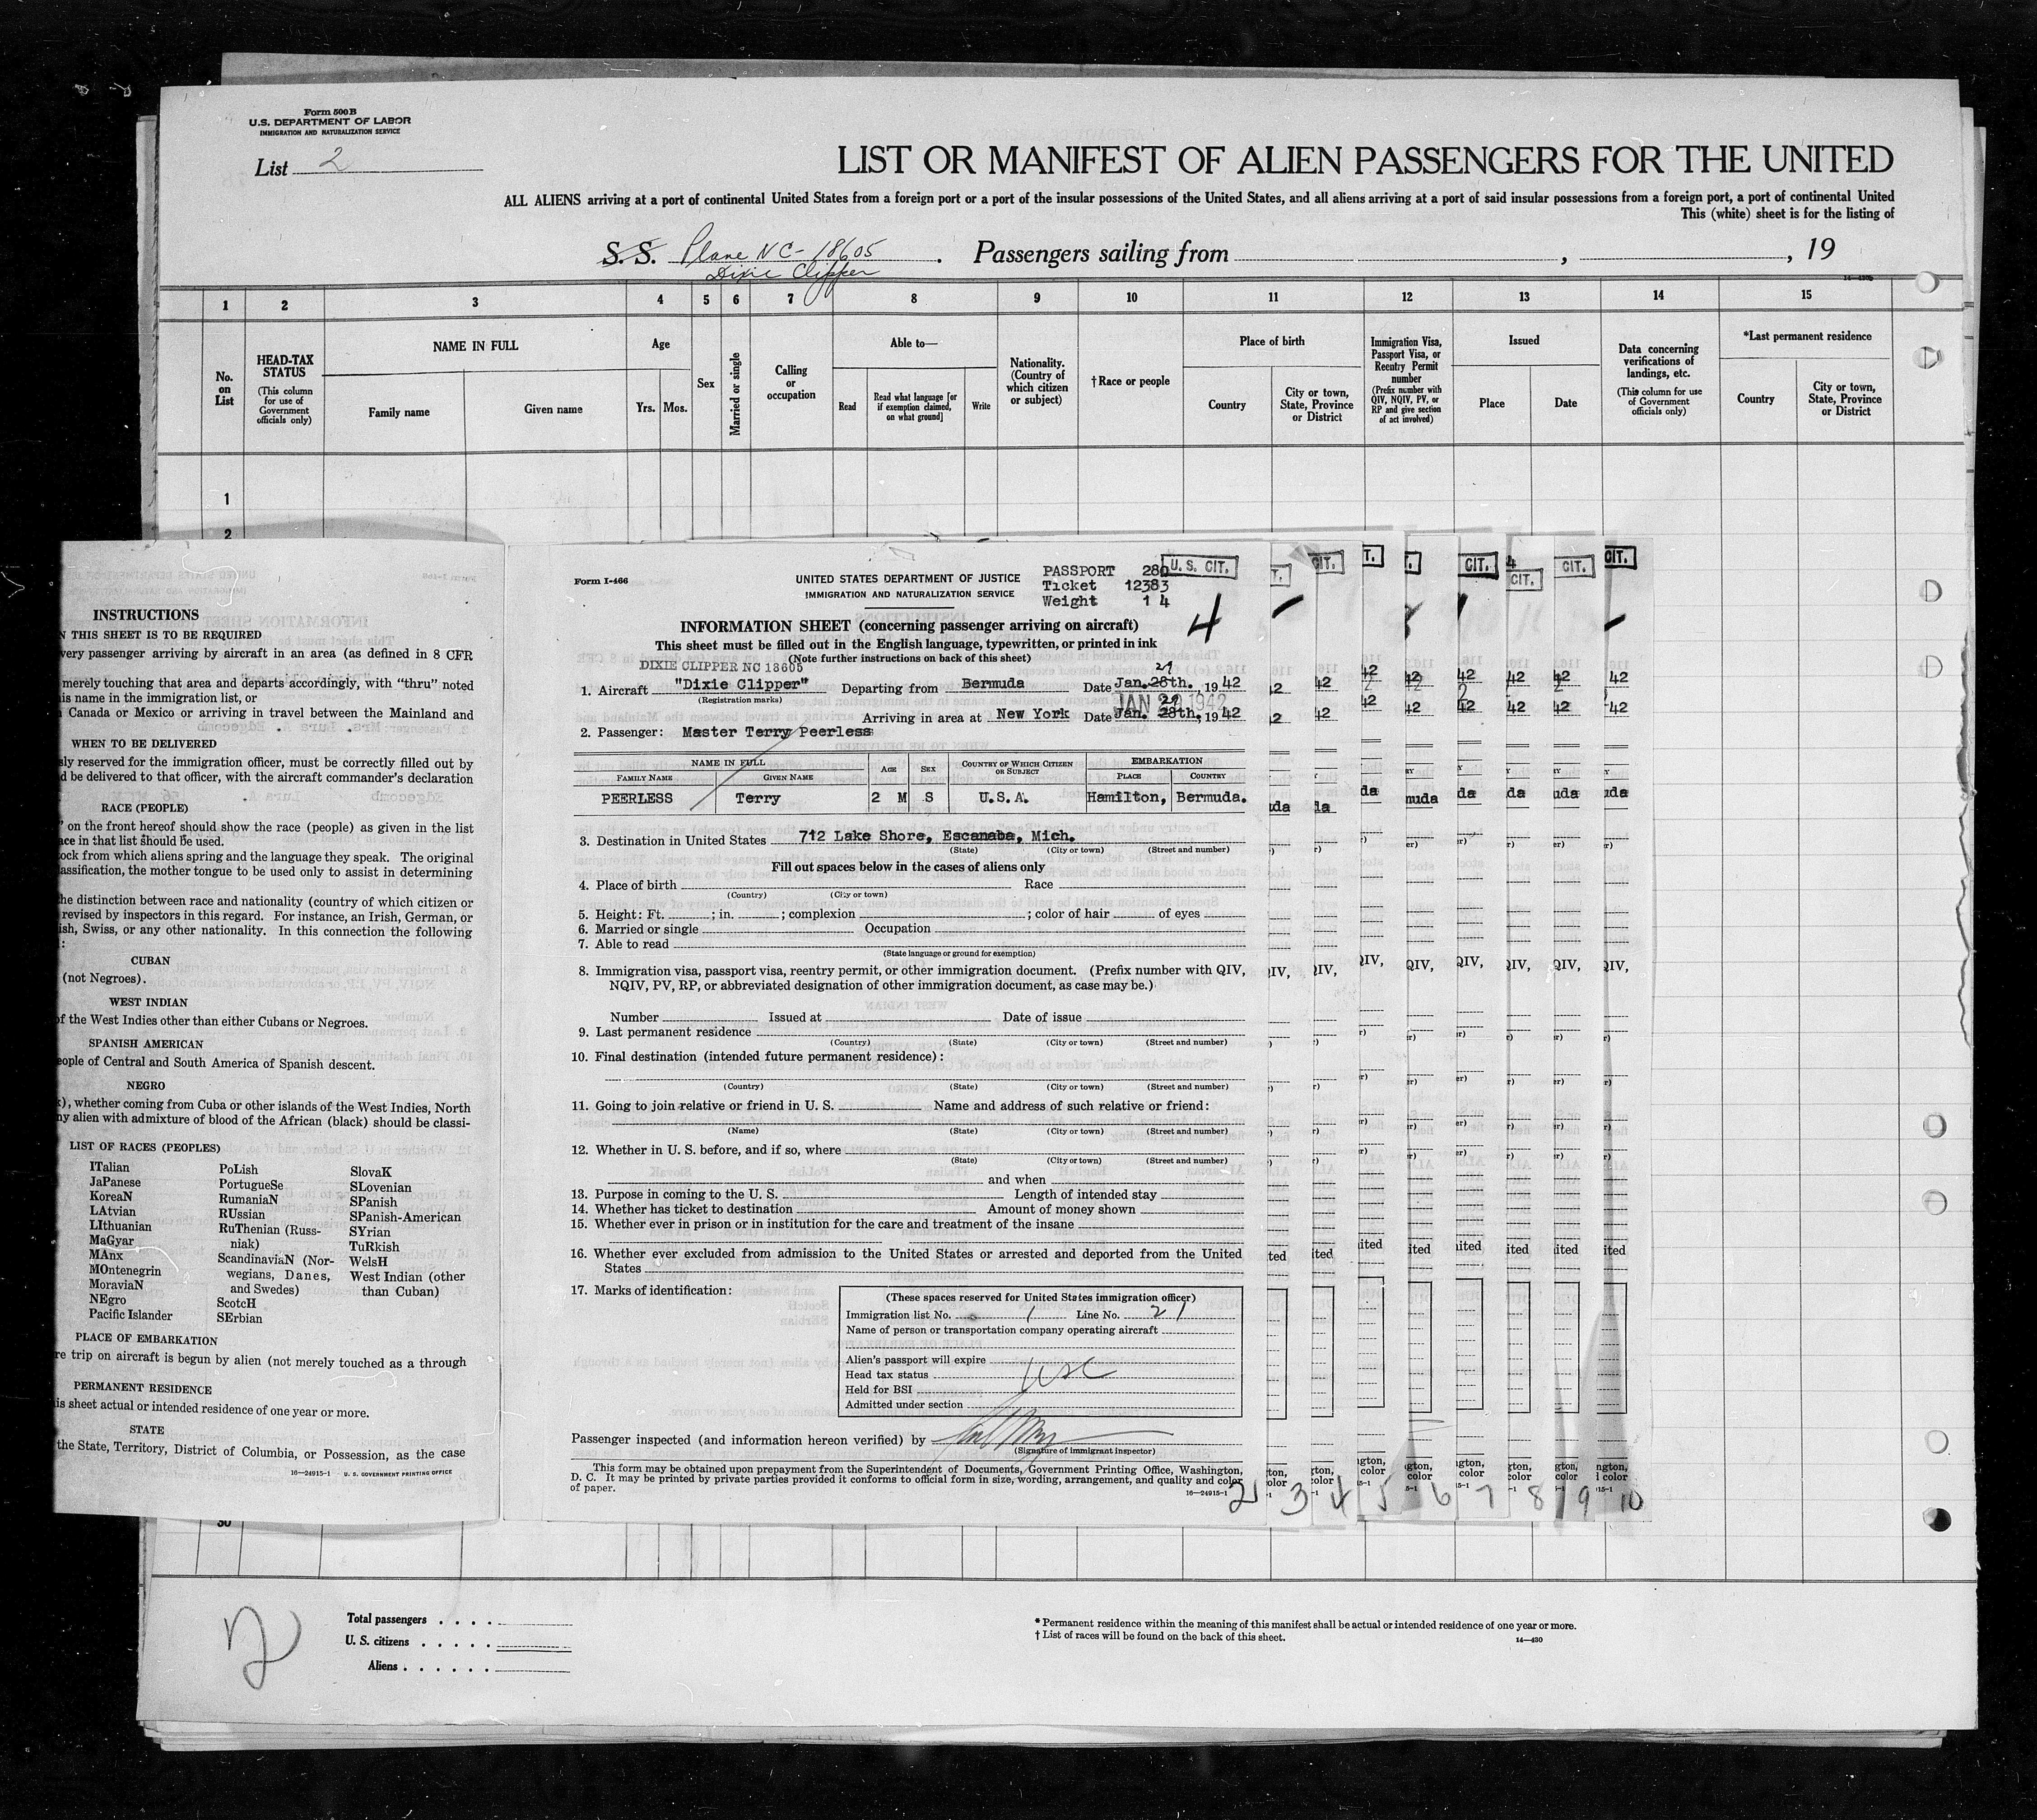 Form 500B
U.S. DEPARTMENT OF LABOR
IMMIGRATION AND NATURALIZATION SERVICE
List 2
LIST OR MANIFEST OF ALIEN PASSENGERS FOR THE UNITED
ALL ALIENS arriving at a port of continental United States from a foreign port or a port of the insular possessions of the United States, and all aliens arriving at a port of said insular possessions from a foreign port, a port of continental United
This (white) sheet is for the listing of
S.S. Plane NC-18605. Passengers sailing from , , 19
Dixie Clipper
14-430b
1 2 3 4 5 6 7 8 9 10 11 12 13 14 15
No. on List
HEAD-TAX STATUS
(This column for use of Government officials only)
NAME IN FULL
Family name
Given name
Age
Yrs. Mos.
Sex
Married or single
Calling or occupation
Able to—
Read
Read what language [or if exemption claimed, on what ground]
Write
Nationality. (Country of which citizen or subject)
†Race or people
Place of birth
Country
City or town, State, Province or District
Immigration Visa, Passport Visa, or Reentry Permit number
(Prefix number with QIV, NQIV, PV, or RP and give section of act involved)
Issued
Place
Date
Data concerning verifications of landings, etc.
(This column for use of Government officials only)
*Last permanent residence
Country
City or town, State, Province or District
1
2
INSTRUCTIONS
N THIS SHEET IS TO BE REQUIRED
very passenger arriving by aircraft in an area (as defined in 8 CFR
merely touching that area and departs accordingly, with “thru” noted
is name in the immigration list, or
Canada or Mexico or arriving in travel between the Mainland and
WHEN TO BE DELIVERED
sly reserved for the immigration officer, must be correctly filled out by
d be delivered to that officer, with the aircraft commander's declaration
RACE (PEOPLE)
” on the front hereof should show the race (people) as given in the list
ace in that list should be used.
ock from which aliens spring and the language they speak. The original
assification, the mother tongue to be used only to assist in determining
he distinction between race and nationality (country of which citizen or
revised by inspectors in this regard. For instance, an Irish, German, or
ish, Swiss, or any other nationality. In this connection the following
:
CUBAN
(not Negroes).
WEST INDIAN
of the West Indies other than either Cubans or Negroes.
SPANISH AMERICAN
eople of Central and South America of Spanish descent.
NEGRO
), whether coming from Cuba or other islands of the West Indies, North
ny alien with admixture of blood of the African (black) should be classi-
LIST OF RACES (PEOPLES)
ITalian
JaPanese
KoreaN
LAtvian
LIthuanian
MaGyar
MAnx
MOntenegrin
MoraviaN
NEgro
Pacific Islander
PoLish
PortugueSe
RumaniaN
RUssian
RuThenian (Russ-
niak)
ScandinaviaN (Nor-
wegians, Danes,
and Swedes)
ScotcH
SErbian
SlovaK
SLovenian
SPanish
SPanish-American
SYrian
TuRkish
WelsH
West Indian (other
than Cuban)
PLACE OF EMBARKATION
re trip on aircraft is begun by alien (not merely touched as a through
PERMANENT RESIDENCE
is sheet actual or intended residence of one year or more.
STATE
the State, Territory, District of Columbia, or Possession, as the case
16—24915-1 U. S. GOVERNMENT PRINTING OFFICE
Form I-466
UNITED STATES DEPARTMENT OF JUSTICE
IMMIGRATION AND NATURALIZATION SERVICE
PASSPORT 280
Ticket 12383
Weight 1 4
U. S. CIT.
4
INFORMATION SHEET (concerning passenger arriving on aircraft)
This sheet must be filled out in the English language, typewritten, or printed in ink
(Note further instructions on back of this sheet)
DIXIE CLIPPER NC 18605
1. Aircraft "Dixie Clipper" Departing from Bermuda Date Jan. 28th. 29, 1942
(Registration marks)
JAN 29 1942
Arriving in area at New York Date Jan. 28th. 29, 1942
2. Passenger: Master Terry Peerless
NAME IN FULL
FAMILY NAME GIVEN NAME
AGE SEX
COUNTRY OF WHICH CITIZEN OR SUBJECT
EMBARKATION
PLACE COUNTRY
PEERLESS Terry 2 M S U.S.A. Hamilton, Bermuda.
3. Destination in United States 712 Lake Shore, Escanaba, Mich.
(State) (City or town) (Street and number)
Fill out spaces below in the cases of aliens only
4. Place of birth Race
(Country) (City or town)
5. Height: Ft. ; in. ; complexion ; color of hair of eyes
6. Married or single Occupation
7. Able to read
(State language or ground for exemption)
8. Immigration visa, passport visa, reentry permit, or other immigration document. (Prefix number with QIV,
NQIV, PV, RP, or abbreviated designation of other immigration document, as case may be.)
Number Issued at Date of issue
9. Last permanent residence
(Country) (State) (City or town) (Street and number)
10. Final destination (intended future permanent residence):
(Country) (State) (City or town) (Street and number)
11. Going to join relative or friend in U. S. Name and address of such relative or friend:
(Name) (State) (City or town) (Street and number)
12. Whether in U. S. before, and if so, where
(State) (City or town) (Street and number)
and when
13. Purpose in coming to the U. S. Length of intended stay
14. Whether has ticket to destination Amount of money shown
15. Whether ever in prison or in institution for the care and treatment of the insane
16. Whether ever excluded from admission to the United States or arrested and deported from the United
States
17. Marks of identification:
(These spaces reserved for United States immigration officer)
Immigration list No. 1 Line No. 21
Name of person or transportation company operating aircraft
Alien's passport will expire
Head tax status USC
Held for BSI
Admitted under section
Passenger inspected (and information hereon verified) by
(Signature of immigrant inspector)
This form may be obtained upon prepayment from the Superintendent of Documents, Government Printing Office, Washington,
D. C. It may be printed by private parties provided it conforms to official form in size, wording, arrangement, and quality and color
of paper.
16—24915-1
2 3 4 5 6 7 8 9 10
30
2
Total passengers . . . .
U. S. citizens . . . . .
Aliens . . . . . .
* Permanent residence within the meaning of this manifest shall be actual or intended residence of one year or more.
† List of races will be found on the back of this sheet.
14—430